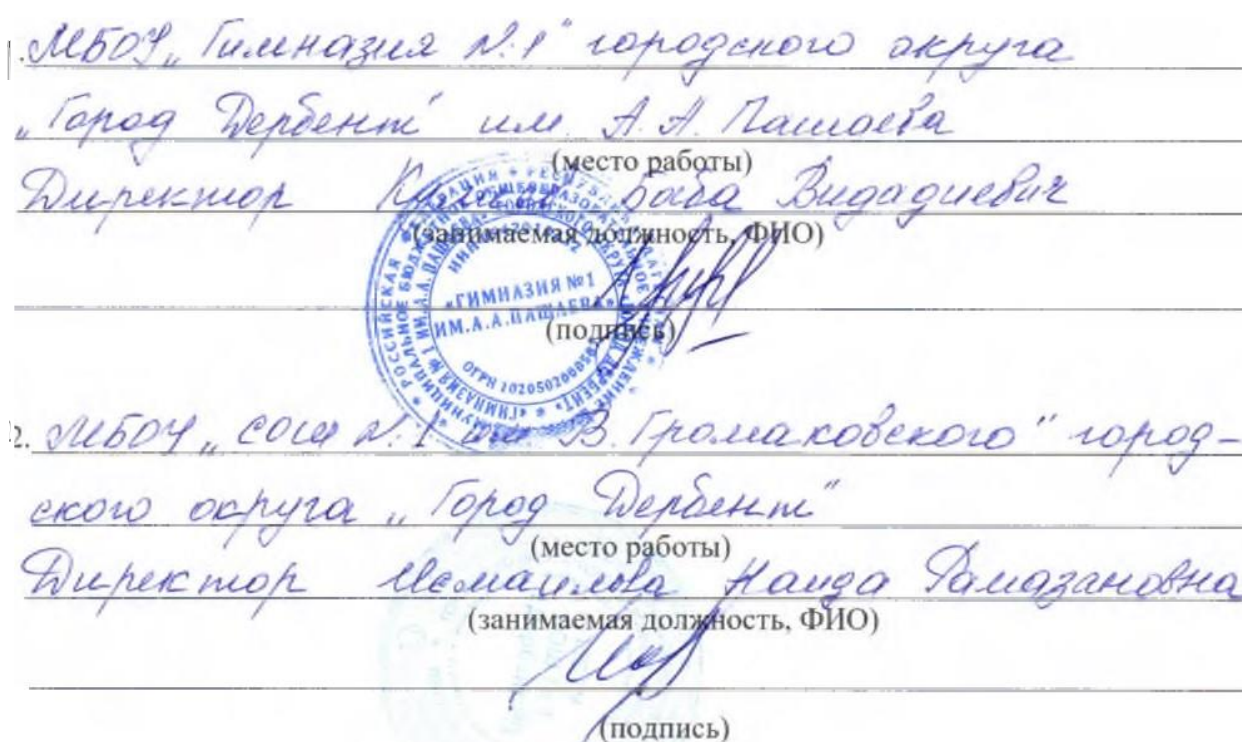 МБОУ „Гимназия №1" городского округа
„Город Дербент" им. А.А. Пашаева
(место работы)
Директор Баба Видадиевич
(занимаемая должность, ФИО)
«ГИМНАЗИЯ №1
ИМ.А.А.ПАШАЕВА»
(подпись)
2. МБОУ „СОШ №1 им В. Громаковского" город-
ского округа „Город Дербент"
(место работы)
Директор Исмаилова Наида Рамазановна
(занимаемая должность, ФИО)
(подпись)